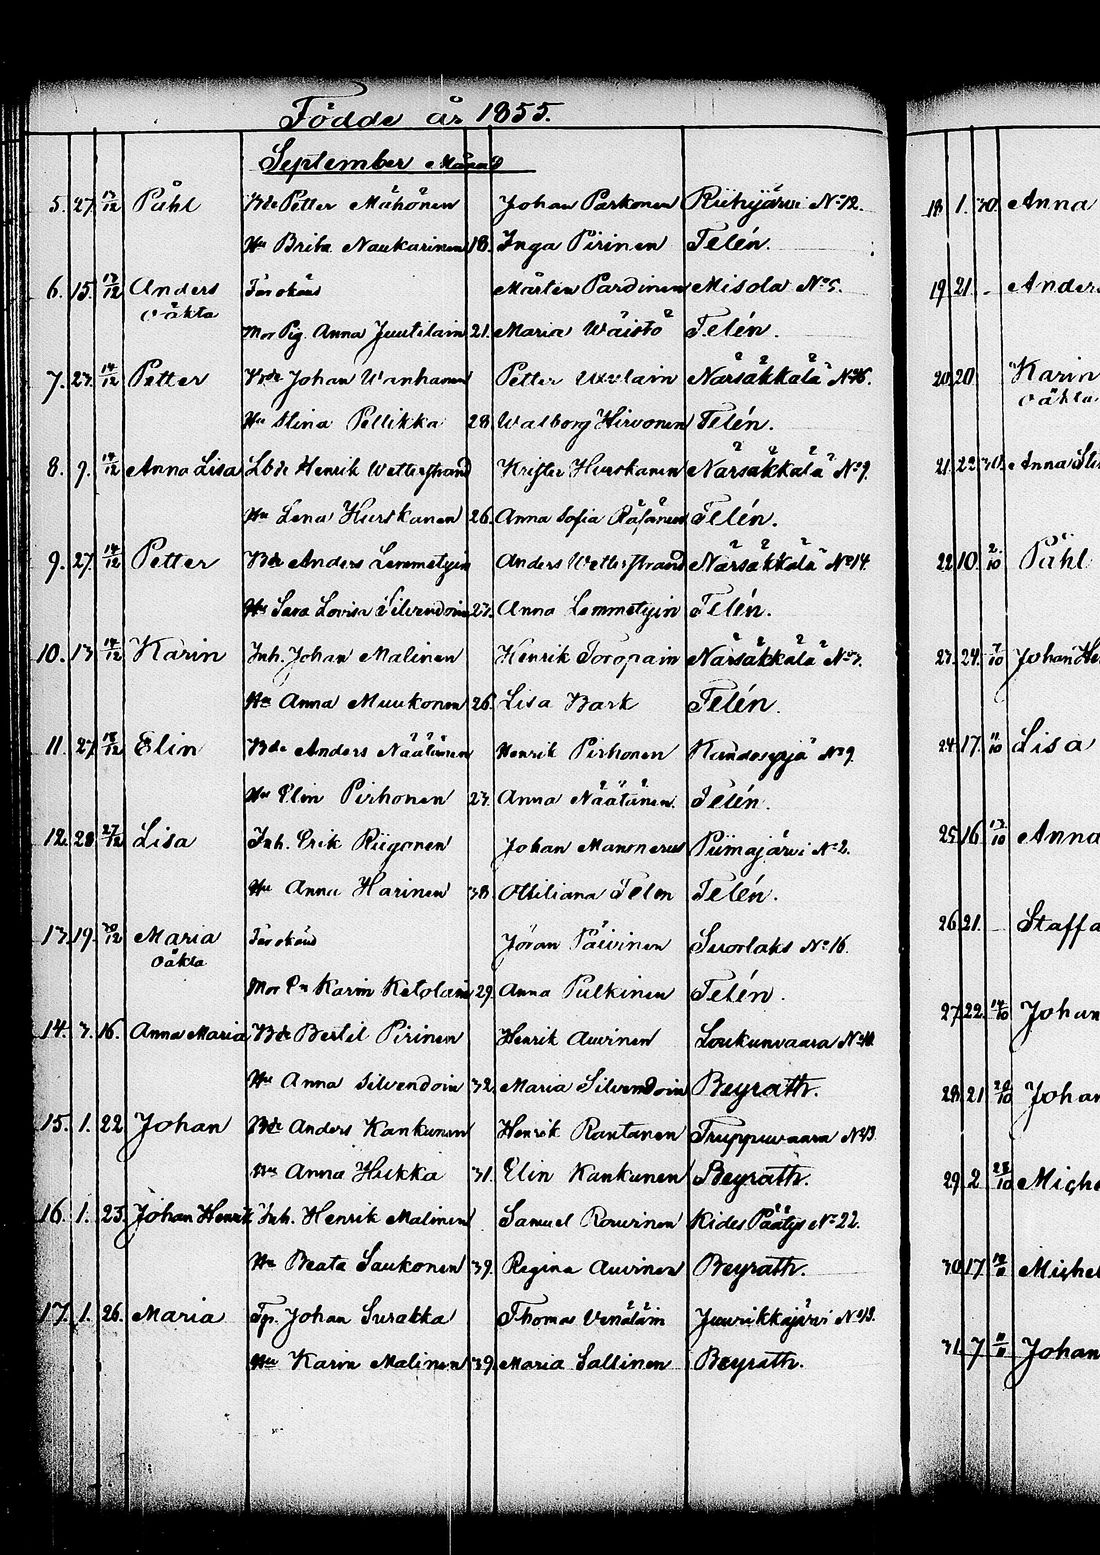 Födde år 1855.
September Månad
5. 27. 12/12 Påhl Bde Petter Mähönen Johan Parkonen Riihijärvi No 12.
Hu Brita Naukarinen 18. Inga Pirinen Telén.
6. 15. 13/12 Anders Far okänd Mårten Pardinen Misola No 5.
oäkta
Mor Pig. Anna Juutilain 21. Maria Wäistö Telén.
7. 23. 14/12 Petter Bde Johan Wanhanen Petter Närsäkkälä No 16.
Hu Stina Pellikka 28. Walborg Hirvonen Telén.
8. 9. 14/12 Anna Lisa Lbde Henrik Wetterstrand Krister Hurskanen Närsäkkälä No 9.
Hu Lena Hurskanen 26. Anna Sofia Räsänen Telén.
9. 27. 14/12 Petter Bde Anders Lemmetyin Anders Wetterstrand Närsäkkälä No 14.
Hu Sara Lovisa Silvendoin 27. Anna Lemmetyin Telén.
10. 13. 14/12 Karin Inh. Johan Malinen Henrik Toropain Närsäkkälä No 3.
Hu Anna Muukonen 26. Lisa Bark Telén.
11. 27. 18/12 Elin Bde Anders Näätänen Henrik Pirhonen No 9.
Hu Elin Pirhonen 23. Anna Näätänen. Telén.
12. 28. 27/12 Lisa Inh. Erik Riigonen Johan Manonerus Piimajärvi No 2.
Hu Anna Harinen 38. Othiliana Telen Telén.
13. 19. 30/12 Maria Far okänd Jöran Päivinen Suorlaks No 16.
oäkta
Mor Karin Ketolain 29. Anna Pulkinen Telén.
14. 3. 16. Anna Maria Bde Bertil Pirinen Henrik Auvinen Loukunvaara No 10.
Hu Anna Silvendoin 32. Maria Silvendoin Beyrath.
15. 1. 22. Johan Bde Anders Kankunen Henrik Rautanen Truppuvaara No 13.
Hu Anna Hukka 31. Elin Kankunen Beyrath.
16. 1. 23. Johan Henrik Inh. Henrik Malinen Samuel Rouvinen Kides Päätys No 22.
Hu Beata Saukonen 39. Regina Auvinen Beyrath.
17. 1. 26. Maria Tp. Johan Surakka Thomas Venäläin Juurikkajärvi No 13.
Hu Karin Malinen 39. Maria Sallinen Beyrath.
18. 1. 30. Anna
19. 21. - Anders
20. 20. Karin
oäkta
21. 22. Anna
22. 10. 2/10 Påhl
23. 24. 7/10 Johan
24. 17. 11/10 Lisa
25. 16. 13/10 Anna
26. 21. - Staffa
27. 22. 14/10 Johan
28. 21. Johan
29. 2. 28/10 Miche
30. 17. Michel
31. 7. Johan